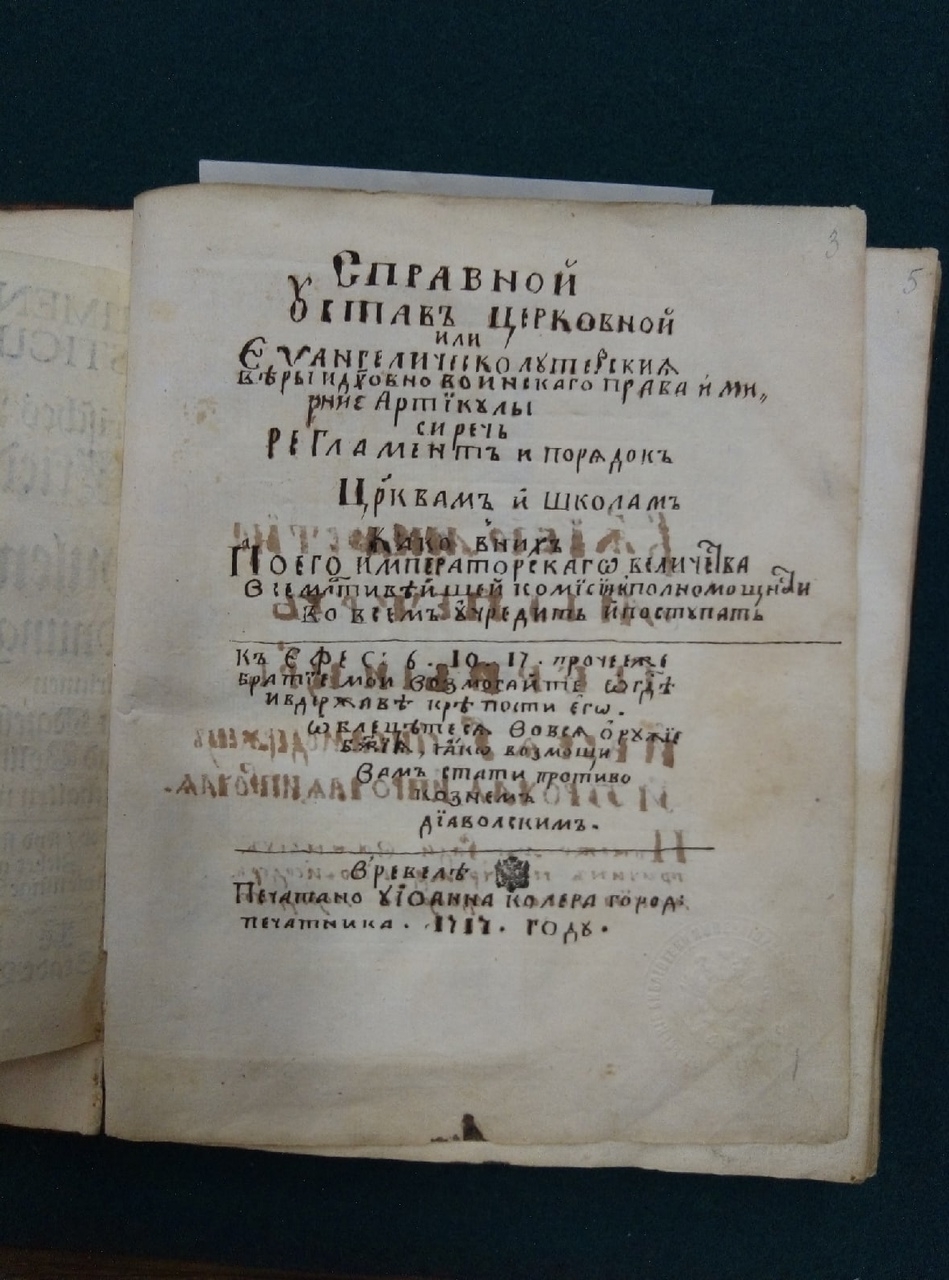 3
5
Справной
Ꙋставъ церковной
или
Єѵангелическолутерския
вѣры идꙋховно воинскаго права и ми„
рние Артїкулы
сиречь
Регламентъ и порядокъ
Црквамъ й школамъ
Како внихъ
Поего императорскагѡ величества
Всемлтивѣйшей комїсїи полномощной
Во всемъ учредить йпоступать
Къ Єфес: 6. 10. 17. прочееже
братїе мои возмогайте ѡ гдѣ
ивдержавѣ крѣпости єгѡ.
ѡблецѣтеся Вовся ѻружїе
бжїя, їакѡ возмощи
Вамъ стати противо
кознемъ
дїаволскимъ.
Вревелѣ
Печатано уїоанна колера город:
печатника. 1717. году.